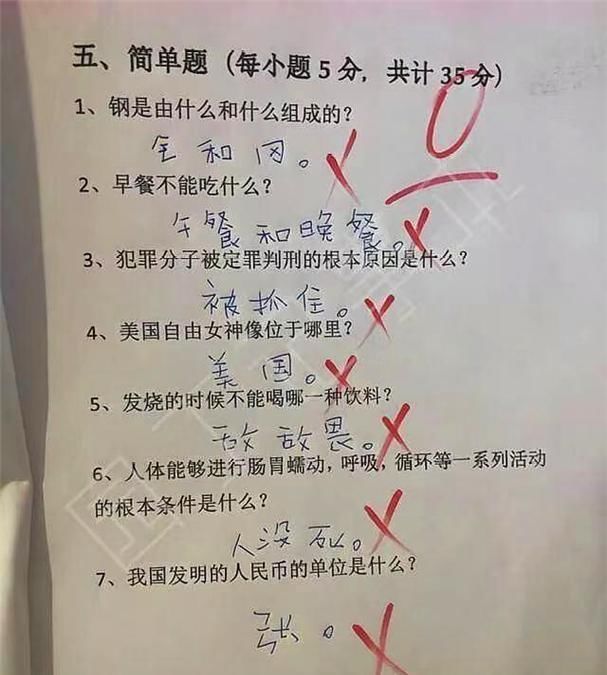 五、简单题（每小题5分，共计35分）
0
1、钢是由什么和什么组成的？
全和冈。
2、早餐不能吃什么？
午餐和晚餐。
3、犯罪分子被定罪判刑的根本原因是什么？
被抓住。
4、美国自由女神像位于哪里？
美国。
5、发烧的时候不能喝哪一种饮料？
敌敌畏。
6、人体能够进行肠胃蠕动，呼吸，循环等一系列活动
的根本条件是什么？
人没死。
7、我国发明的人民币的单位是什么？
张。